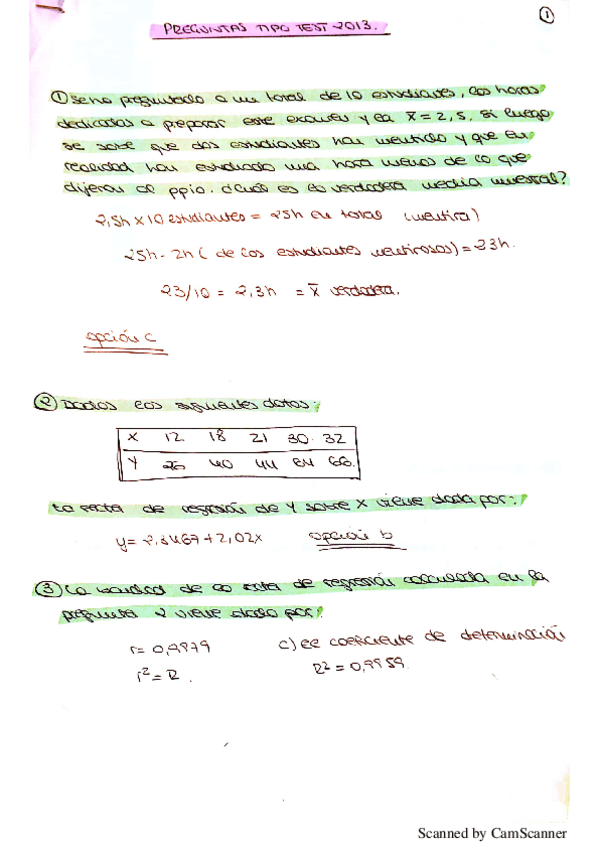 1
PREGUNTAS TIPO TEST 2013.
① Se ha preguntado a un total de 10 estudiantes, las horas
dedicadas a preparar este examen y la x̄ = 2,5, si luego
se sabe que dos estudiantes han mentido y que en
realidad han estudiado una hora menos de lo que
dijeron al ppio. ¿cuál es la verdadera media muestral?
2,5h x 10 estudiantes = 25h en total (mentira)
25h - 2h (de los estudiantes mentirosos) = 23h.
23/10 = 2,3h = x̄ verdadera.
opción c
② Dados los siguientes datos:
X 12 18 21 30 32
Y 26 40 44 64 66
La recta de regresión de Y sobre X viene dada por:
y = 2,3467 + 2,02x opción b
③ La bondad de la recta de regresión calculada en la
pregunta 2 viene dado por:
r = 0,9979 c) el coeficiente de determinación
r² = R. R² = 0,9959.
Scanned by CamScanner